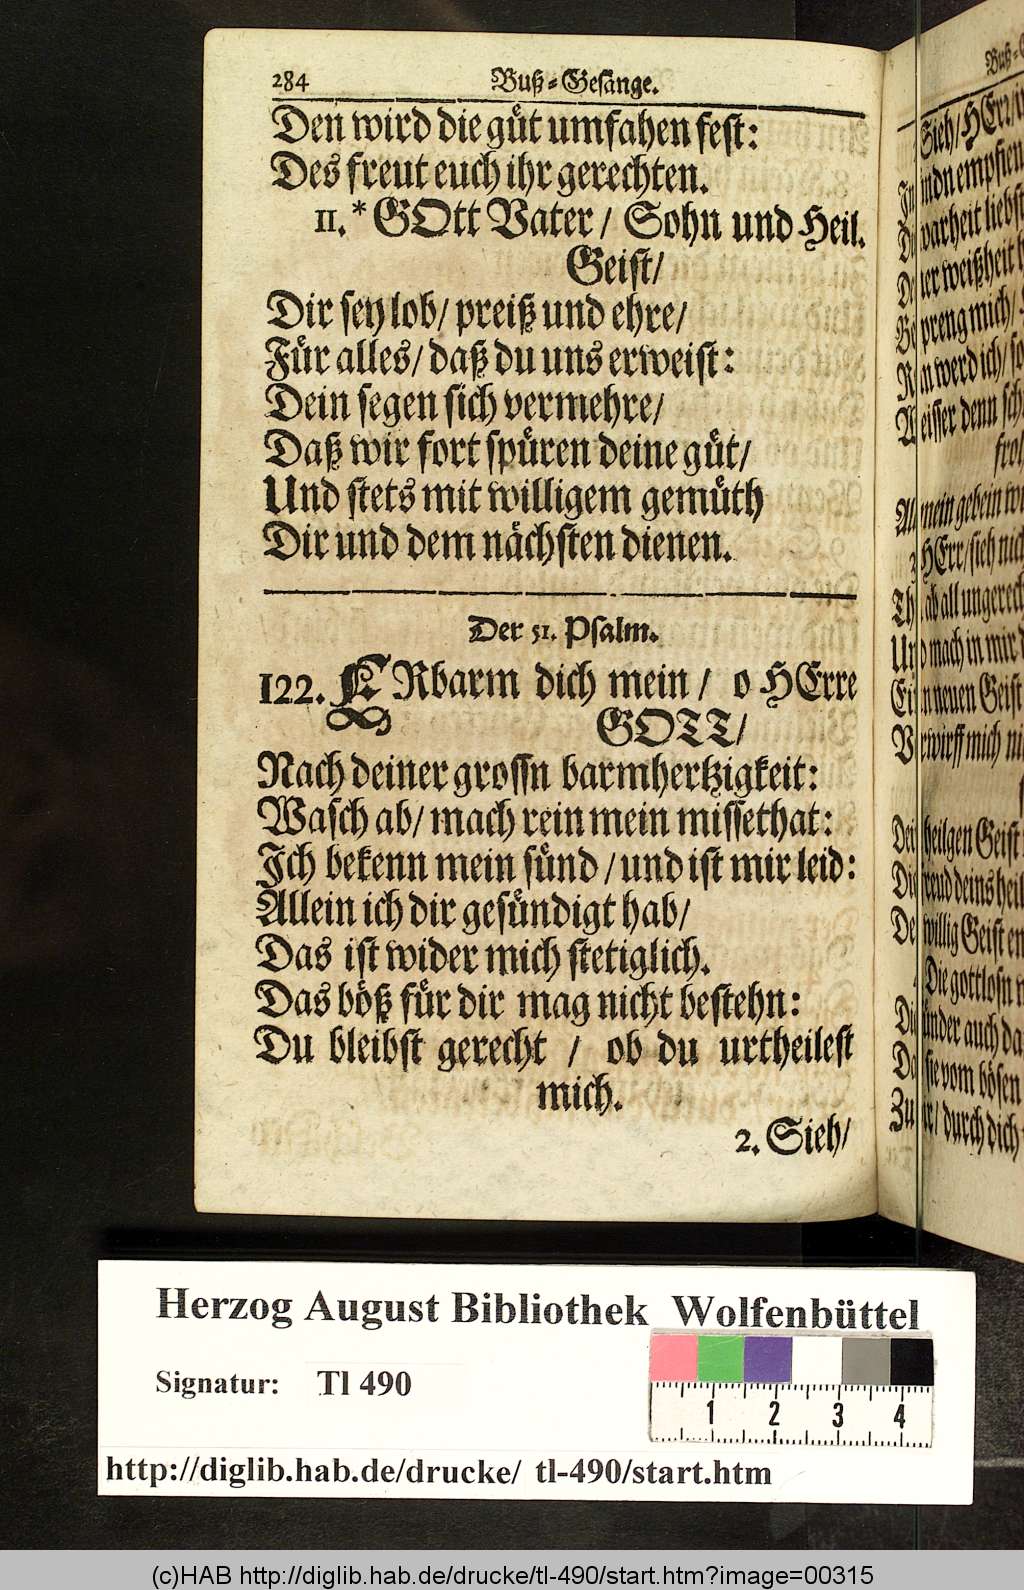 284 Buß-Gesänge.
Den wird die güt umfahen fest:
Des freut euch ihr gerechten.
11.* GOtt Vater / Sohn und Heil.
Geist/
Dir sey lob/ preiß und ehre/
Für alles/ daß du uns erweist:
Dein segen sich vermehre/
Daß wir fort spüren deine güt/
Und stets mit willigem gemüth
Dir und dem nächsten dienen.
Der 51. Psalm.
122. ERbarm dich mein / o HErre
GOTT/
Nach deiner grossn barmhertzigkeit:
Wasch ab/ mach rein mein missethat:
Ich bekenn mein sünd / und ist mir leid:
Allein ich dir gesündigt hab/
Das ist wider mich stetiglich.
Das böß für dir mag nicht bestehn:
Du bleibst gerecht / ob du urtheilest
mich.
2. Sieh/
Sieh/ HErr/
empfien
warheit liebst
weißheit
spreng mich/
werd ich/
denn
mein gebein
HErr/ sieh nich
ab all ungerech
mach in mir
neuen Geist
mich
heilgen Geist
freud deins heil
willig Geist
Die gottlosn
sünder auch da
sie vom bösen
durch dich
Herzog August Bibliothek Wolfenbüttel
Signatur: Tl 490
1 2 3 4
http://diglib.hab.de/drucke/ tl-490/start.htm
(c)HAB http://diglib.hab.de/drucke/tl-490/start.htm?image=00315